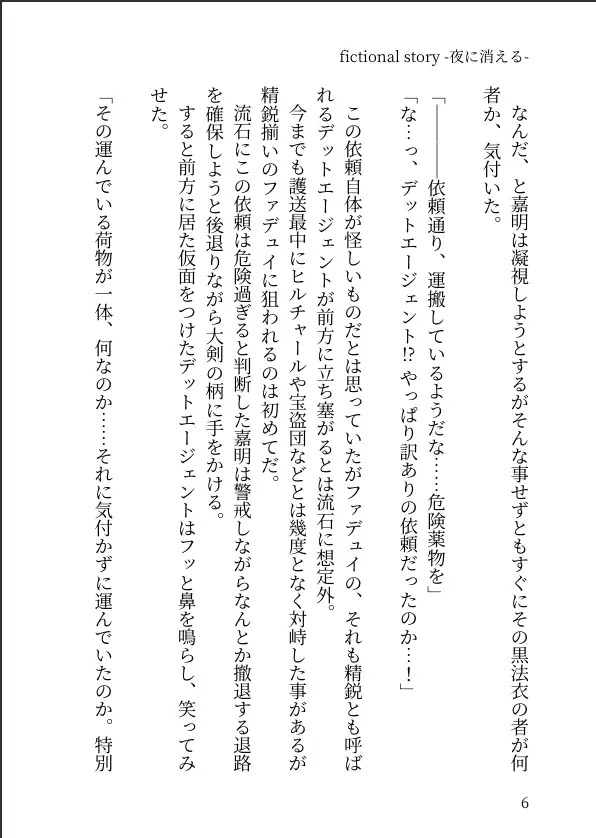 fictional story -夜に消える-
なんだ、と嘉明は凝視しようとするがそんな事せずともすぐにその黒法衣の者が何
者か、気付いた。
「――――依頼通り、運搬しているようだな……危険薬物を」
「な…っ、デットエージェント!? やっぱり訳ありの依頼だったのか…！」
この依頼自体が怪しいものだとは思っていたがファデュイの、それも精鋭とも呼ば
れるデットエージェントが前方に立ち塞がるとは流石に想定外。
今までも護送最中にヒルチャールや宝盗団などとは幾度となく対峙した事があるが
精鋭揃いのファデュイに狙われるのは初めてだ。
流石にこの依頼は危険過ぎると判断した嘉明は警戒しながらなんとか撤退する退路
を確保しようと後退りながら大剣の柄に手をかける。
すると前方に居た仮面をつけたデットエージェントはフッと鼻を鳴らし、笑ってみ
せた。
「その運んでいる荷物が一体、何なのか……それに気付かずに運んでいたのか。特別
6